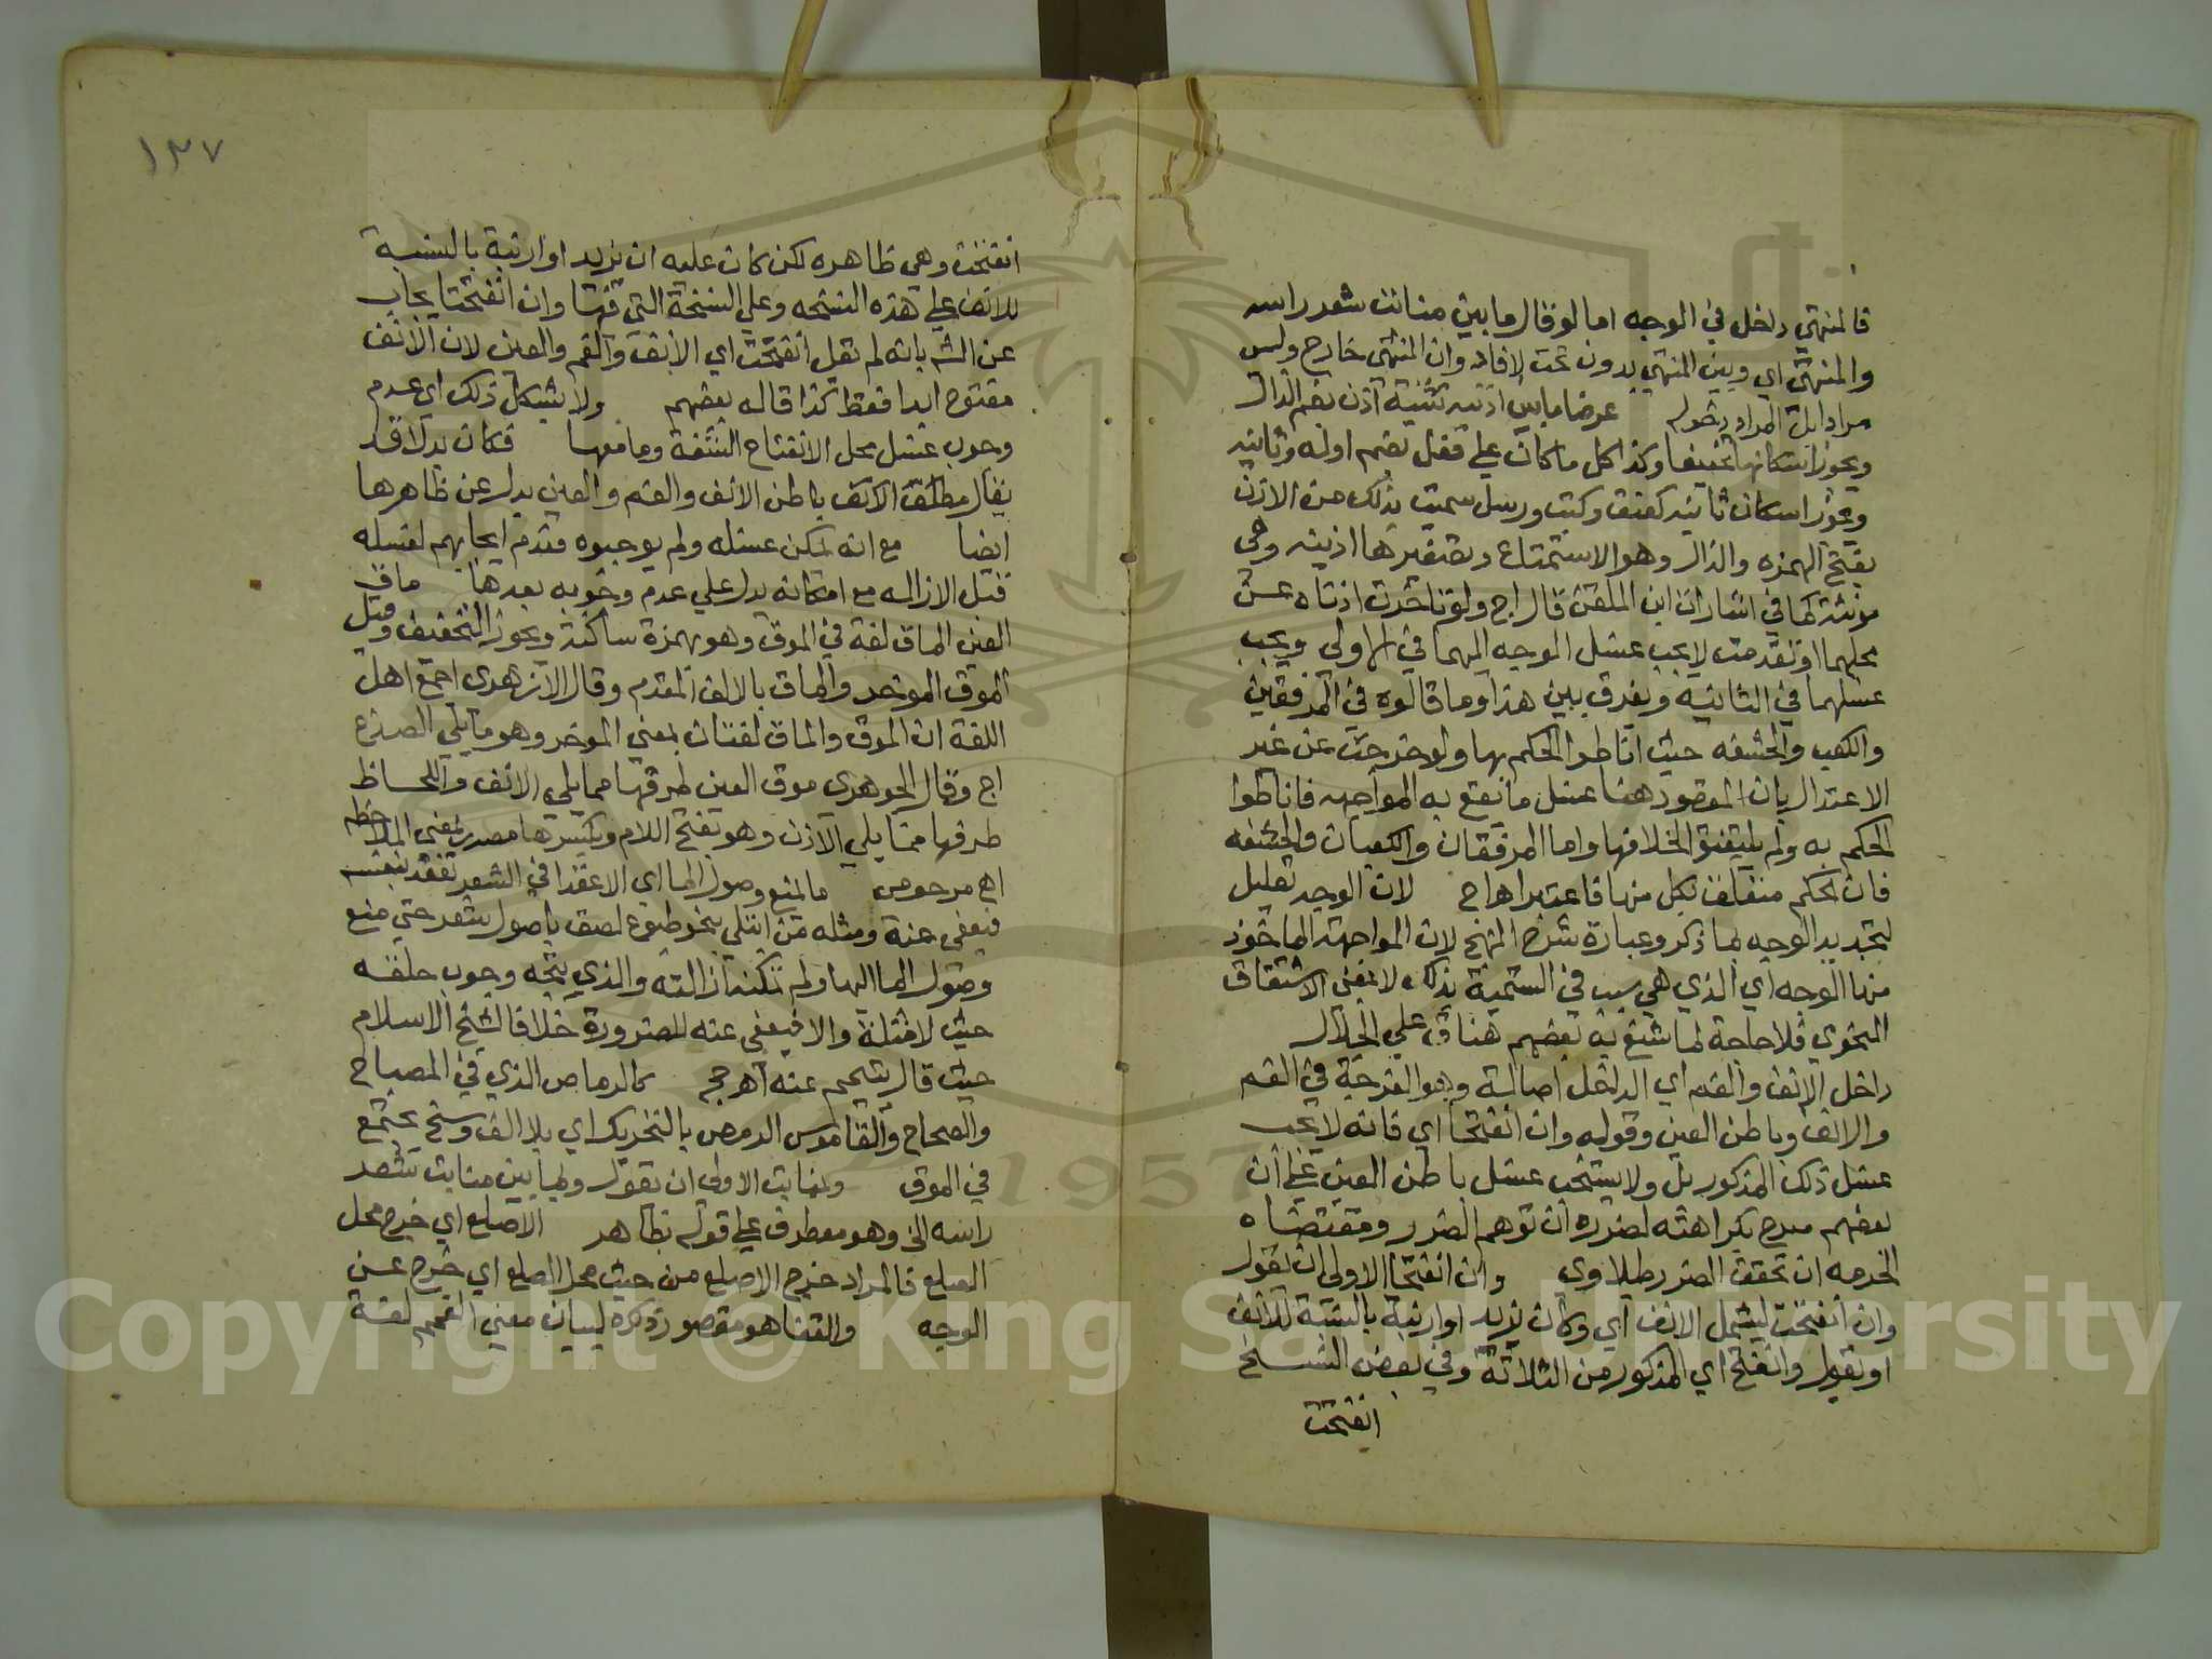 فالمنتهي داخل في الوجه اما لو قال ما بين منابت شعر راسه
والمنتهى اي وبين المنتهي بدون تحت لافاد وان المنتهى خارج وليس
مرادا بل المراد دخوله عرضا ما بين اذنيه تثنية اذن بضم الذال
ويجوز اسكانها تخفيفا وكذا كل ما كان علي فعل بضم اوله وثانيه
ويجوز اسكان ثانيه كعنق وكتب ورسل سميت بذلك من الاذن
بفتح الهمزه والذال وهو الاستمتاع وتصغيرها اذينه وهي
مونثة كما في اشارات ابن الملقن قال اج ولو تاخرت اذناه عن
محلهما او تقدمت لا يجب غسل الوجه اليهما في الاولى ويجب
غسلهما في الثانيه ويفرق بين هذا وما قالوه في المرفقين
والكعب والحشفه حيث اناطوا الحكم بها ولو خرجت عن غير
الاعتدال بان المقصود هنا غسل ما تقع به المواجهه فاناطوا
الحكم به ولم يليتفتوا لخلافها واما المرفقان والكعبان والحشفه
فان الحكم متعلق بكل منها فاعتبر اهـ اج لان الوجه تعليل
لتحديد الوجه بما ذكر وعبارة شرح المنهج لان المواجهة الماخوذ
منها الوجه اي الذي هي سبب في التسمية بذلك لا بمعنى الاشتقاق
النحوي فلا حاجة لما شنع به بعضهم هنا ق علي الجلال
داخل الانف والفم اي الداخل اصالة وهو الفرجة في الفم
والانف وباطن العين وقوله وان انفتحا اي فانه لا يجب
غسل ذلك المذكور بل ولا يستحب غسل باطن العين علي ان
بعضهم صرح بكراهته لضرره ان توهم الضرر ومقتضاه
الحرمه ان تحقق الضرر طبلاوي وان انفتحا الاولى ان يقول
وان انفتحت ليشمل الانف اي وكان يزيد او ارنبة بالنسبة للانف
او يقول وانفتح اي المذكور من الثلاثة وفي بعض النسخ
انفتحت
١٣٧
انفتحت وهي ظاهره لكن كان عليه ان يزيد او ارنبة بالنسبة
للانف علي هذه النسخه وعلي النسخة التي فيها وان انفتحتا يجاب
عن الشـ بانه لم يقل انفتحت اي الانف والفم والعين لان الانف
مفتوح ابدا فقط كذا قاله بعضهم ولا يشكل ذلك اي عدم
وجوب غسل محل الانفتاح الشفة وما معها فكان بدلا قد
يقال مطلق الانف باطن الانف والفم والعين بدل عن ظاهرها
ايضا مع انه يمكن غسله ولم يوجبوه فعدم ايجابهم لغسله
قبل الازاله مع امكانه يدل علي عدم وجوبه بعدها ماق
العين الماق لغة في الموق وهو بهمزة ساكنة ويجوز التخفيف وقيل
الموق الموخر والماق بالالف المقدم وقال الازهري اجمع اهل
اللغة ان الموق والماق لغتان بمعني الموخر وهو ما يلي الصدغ
اج وقال الجوهري موق العين طرفها مما يلي الانف واللحاظ
طرفها مما يلي الاذن وهو بفتح اللام وبكسرها مصدر بمعني الملاحظه
اهـ مرحومي ما لمنع وصول الما اي الا عقدا في الشعر تعقد بنفسه
فيعفى عنه ومثله من ابتلي بنحو طبوع لصق باصول شعره حتي منع
وصول الما اليها ولم تمكنه ازالته والذي يتجه وجوب حلقه
حيث لا مثلة والا فيعفى عنه للضرورة خلافا لشيخ الاسلام
حيث قال يتيمم عنه اهـ حجر كالرماص الذي في المصباح
والصحاح والقاموس الرمص بالتحريك اي بلا الف وسخ يجتمع
في الموق ولمنابت الاولى ان يقول ولما بين منابت شعر
راسه الخ وهو معطوف علي قوله بظاهر الاصلع اي خرج محل
الصلع فالمراد خرج الاصلع من حيث محل الصلع اي خرج عن
الوجه والقفا هو مقصور ذكره لبيان معني الغمم لغة
Copyright © King Saud University
1957